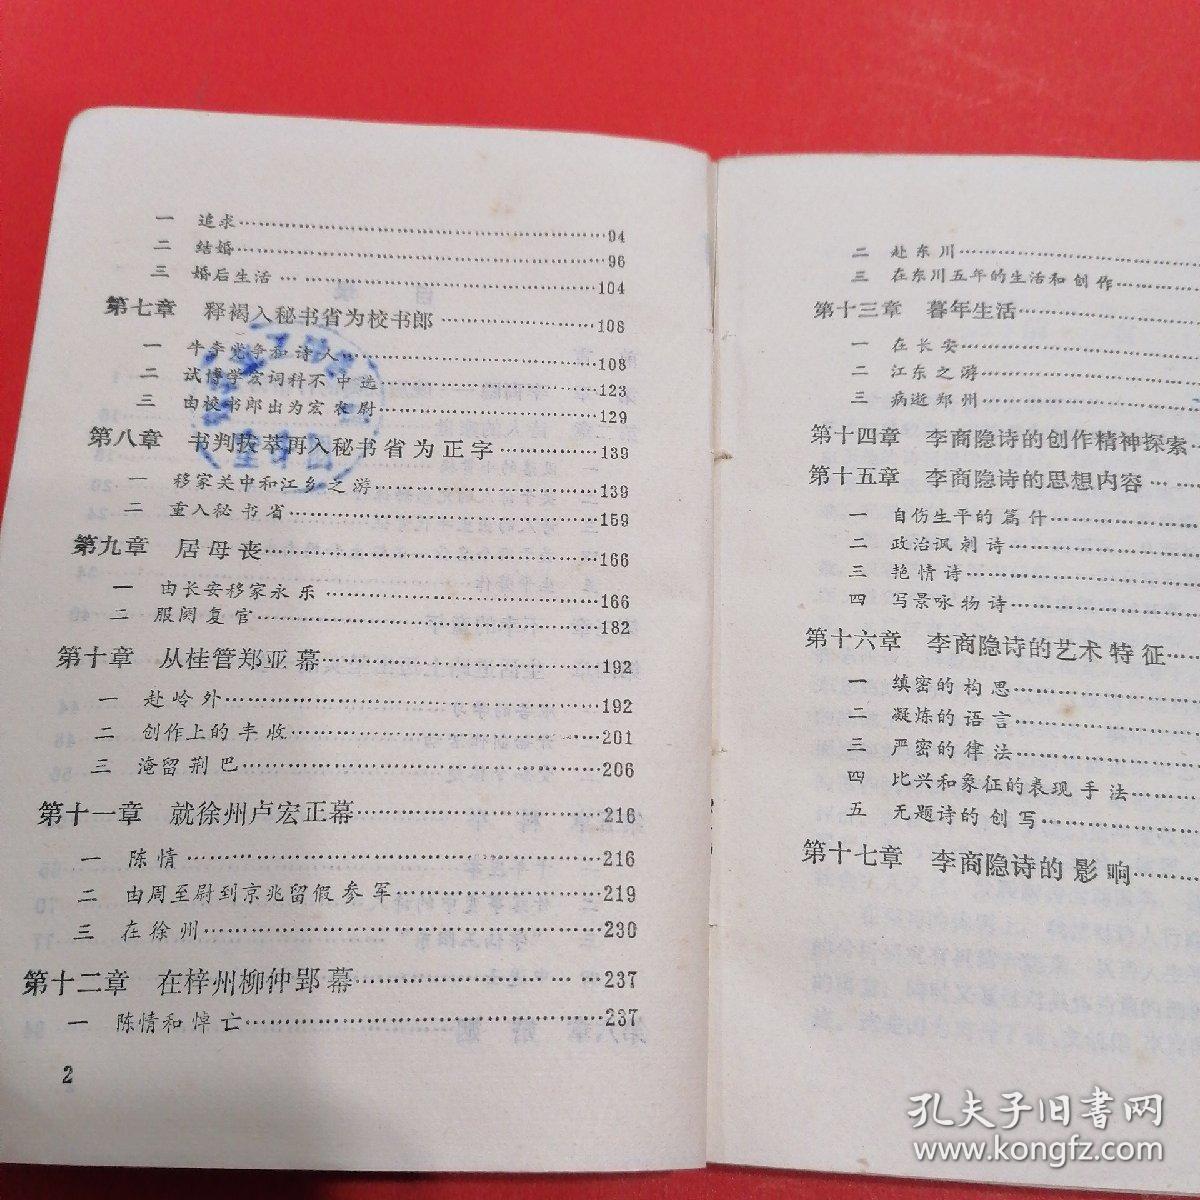 一 追求……94
二 结婚……96
三 婚后生活……104
第七章 释褐入秘书省为校书郎……108
一 牛李党争和诗人……108
二 试博学宏词科不中选……123
三 由校书郎出为宏农尉……129
第八章 书判拔萃再入秘书省为正字……139
一 移家关中和江乡之游……139
二 重入秘书省……159
第九章 居母丧……166
一 由长安移家永乐……166
二 服阕复官……182
第十章 从桂管郑亚幕……192
一 赴岭外……192
二 创作上的丰收……201
三 淹留荆巴……206
第十一章 就徐州卢宏正幕……216
一 陈情……216
二 由周至尉到京兆留假参军……219
三 在徐州……230
第十二章 在梓州柳仲郢幕……237
一 陈情和悼亡……237
2
二 赴东川……
三 在东川五年的生活和创作……
第十三章 暮年生活……
一 在长安……
二 江东之游……
三 病逝郑州……
第十四章 李商隐诗的创作精神探索……
第十五章 李商隐诗的思想内容……
一 自伤生平的篇什……
二 政治讽刺诗……
三 艳情诗……
四 写景咏物诗……
第十六章 李商隐诗的艺术特征……
一 缜密的构思……
二 凝炼的语言……
三 严密的律法……
四 比兴和象征的表现手法……
五 无题诗的创写……
第十七章 李商隐诗的影响……
孔夫子旧书网
www.kongfz.com